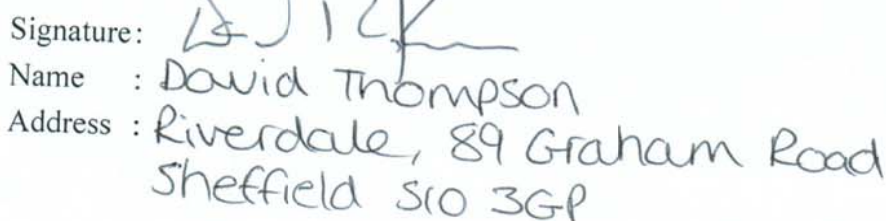 Signature:
Name : David Thompson
Address : Riverdale, 89 Graham Road
Sheffield S10 3GP